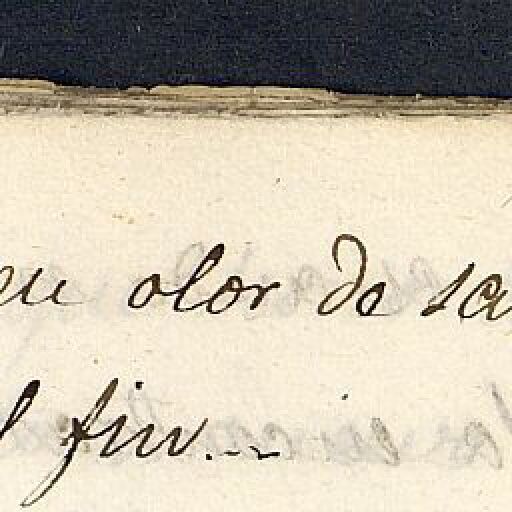 en olor de sa
l fin...